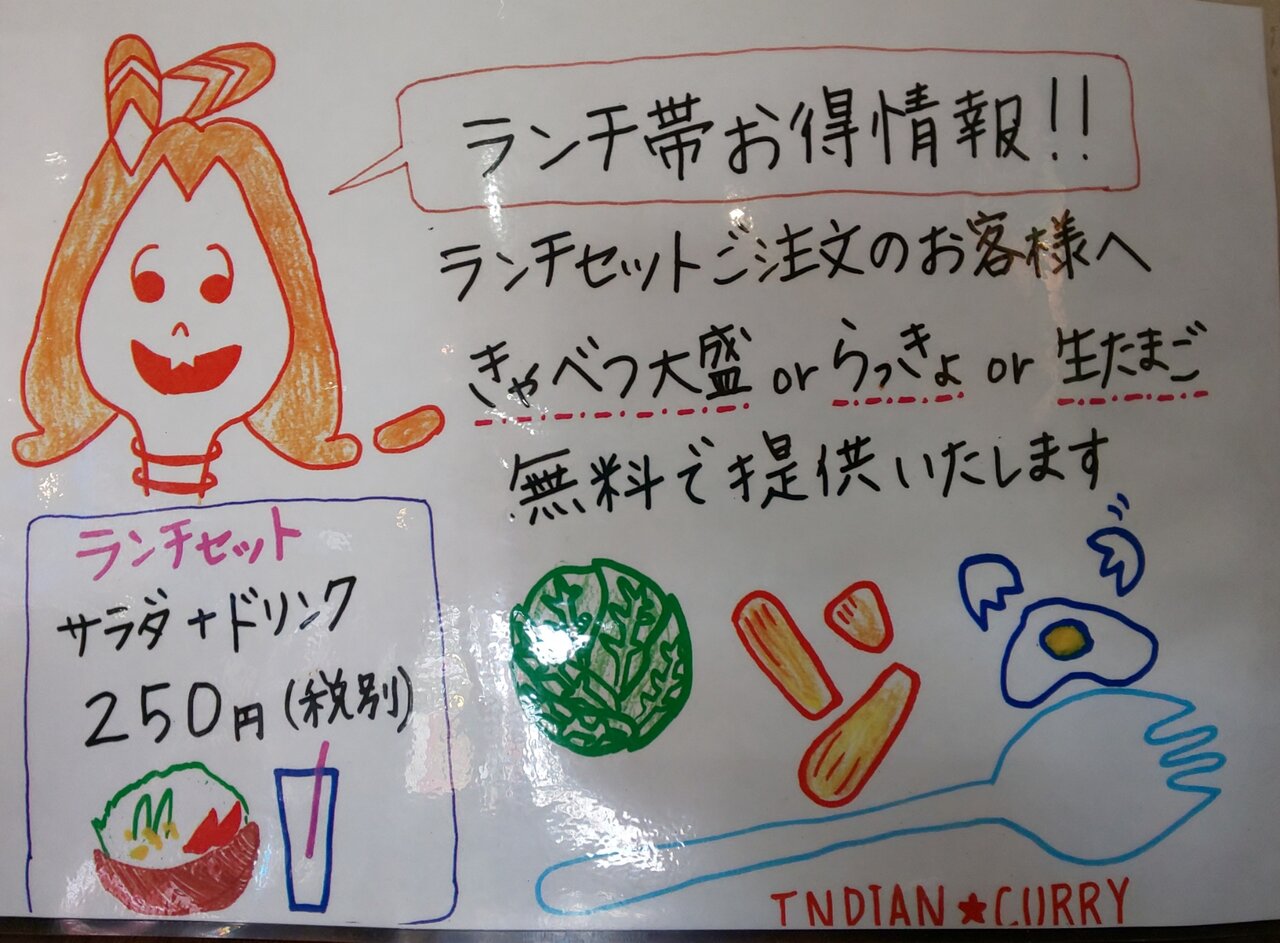 ランチ帯お得情報!!
ランチセットご注文のお客様へ
きゃべつ大盛 or らっきょ or 生たまご
無料で提供いたします
ランチセット
サラダ+ドリンク
250円(税別)
INDIAN★CURRY